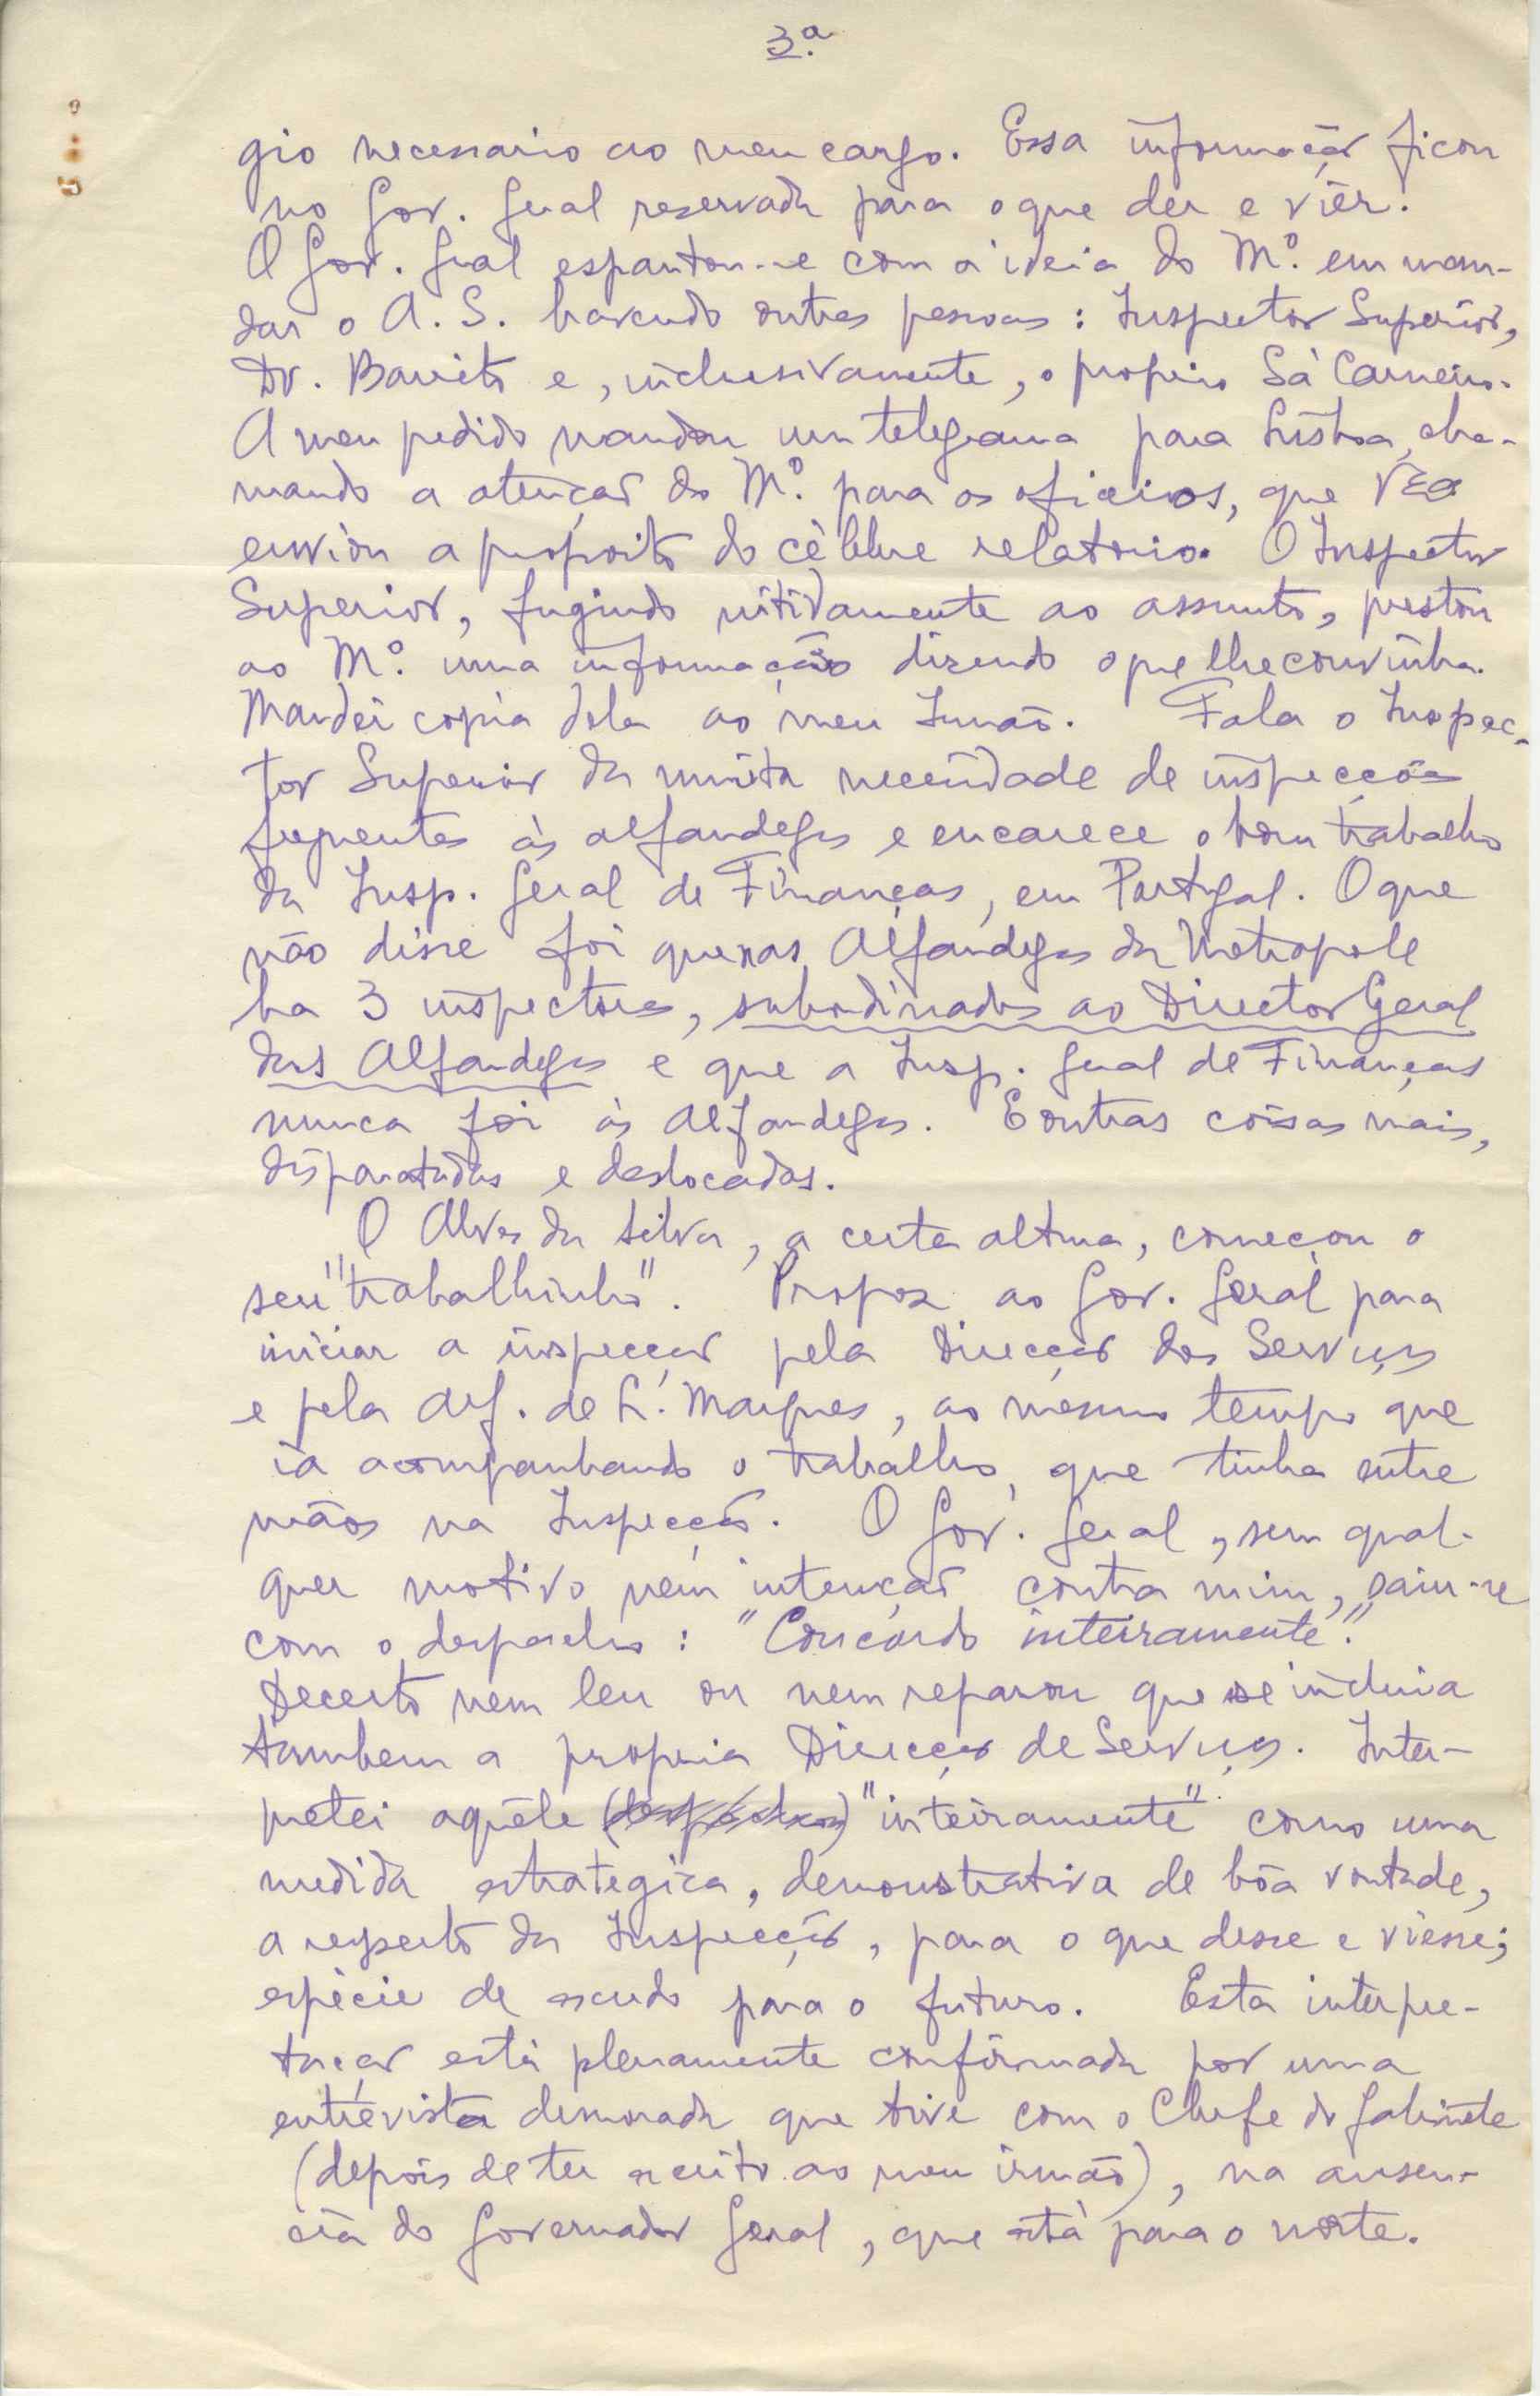 3.ª
gio necessario ao meu cargo. Essa informação ficou
no Gov. Geral reservada para o que der e viér.
O Gov. Geral espantou-se com a ideia do M.º em man-
dar o A. S. havendo outras pessoas: Inspector Superior,
Dr. Barreto e, inclusivamente, o proprio Sá Carneiro.
A meu pedido mandou um telegrama para Lisboa, cha-
mando a atenção do M.º para os oficios, que
enviou a proposito do célebre relatorio. O Inspector
Superior, fugindo nitidamente ao assunto, prestou
ao M.º uma informação dizendo o que lhe convinha.
Mandei copia dela ao meu Irmão. Fala o Inspec-
tor Superior da muita necessidade de inspecções
frequentes às alfandegas e encarece o bom trabalho
da Insp. Geral de Finanças, em Portugal. O que
não disse foi que nas Alfandegas da Metropole
ha 3 inspectores, subordinados ao Director Geral
das Alfandegas e que a Insp. Geral de Finanças
nunca foi às Alfandegas. E outras coisas mais,
disparatadas e deslocadas.
O Alves da Silva, a certa altura, começou o
seu "trabalhinho". Propoz ao Gov. Geral para
iniciar a inspecção pela Direcção dos Serviços
e pela Alf. de L. Marques, ao mesmo tempo que
ia acompanhando o trabalho, que tinha entre
mãos na Inspecção. O Gov. Geral, sem qual-
quer motivo nem intenção contra mim, saiu-se
com o despacho: "Concordo inteiramente".
Decerto nem leu ou nem reparou que se incluia
tambem a propria Direcção de Serviços. Inter-
pretei aquêle (despacho) "inteiramente" como uma
medida estrategica, demonstrativa de bôa vontade,
a respeito da Inspecção, para o que desse e viesse;
espécie de escudo para o futuro. Esta interpre-
tação está plenamente confirmada por uma
entrevista demorada que tive com o Chefe do Gabinete
(depois de ter escrito ao meu irmão), na ausen-
cia do Governador Geral, que está para o norte.